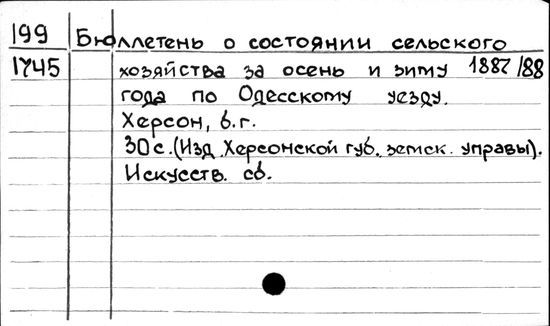 199 Бюллетень о состоянии сельского
1745 хозяйства за осень и зиму 1887/88
года по Одесскому уезду.
Херсон, б.г.
30с.(Изд. Херсонской губ. земск. управы).
Искусств. сб.